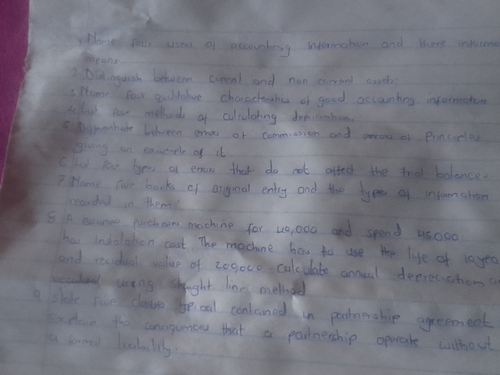 1, Name four users of accounting information and there information
means
2. Distinguish between current and non current assets.
3. Name four qualitative characteristics of good accounting information
4. List four methods of calculating depreciation
5 Differentiate between errors of commission and errors of Principles
giving an example of it
6. List four types of errors that do not affect the trial balance.
7. Name five books of original entry and the types of information
recorded in them?
8. A business purchases machine for and spend 45000
has instalation cost The machine has to use the life of 10 years
and residual value of 200,000 calculate annual depreciation
using straight line method
9, state five clauses typical contained in partnership agreement
Explain the consequences that a partnership operate without
a liability.